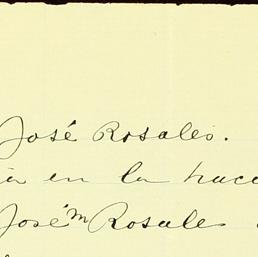 José Rosales.
ia en la hace
José M Rosales